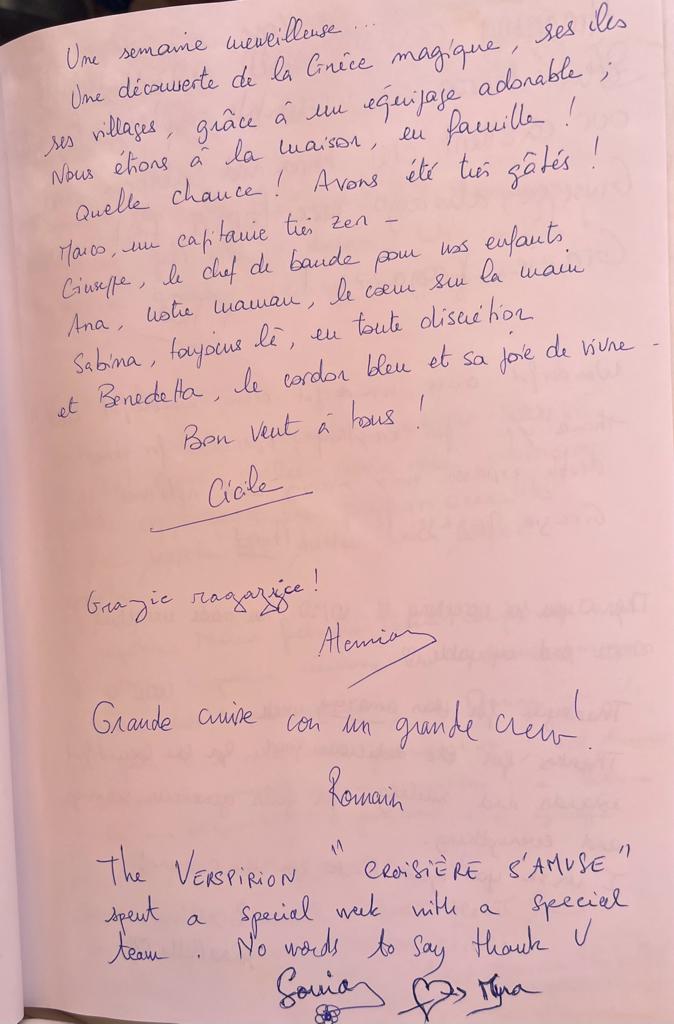 Une semaine merveilleuse...
Une découverte de la Grèce magique, ses iles
ses villages, grâce à un équipage adorable ;
Nous étions à la maison, en famille !
Quelle chance ! Avons été très gâtés !
Marco, un capitanie très zen -
Giuseppe, le chef de bande pour nos enfants.
Ana, notre maman, le cœur sur la main
Sabina, toujours là, en toute discrétion
et Benedetta, le cordon bleu et sa joie de vivre -
Bon vent à tous !
Cécile
Grazie ragazzice!
Grande cruise con un grande crew!
Romain
The VERSPIRION " CROISIÈRE S'AMUSE "
spent a special week with a special
team. No words to say thank U
Sonia Myra